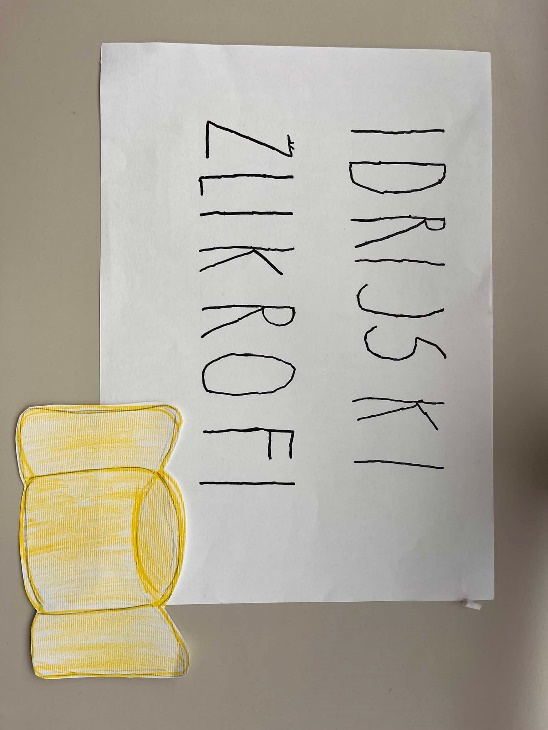 IDRIJSKI
ŽLIKROFI